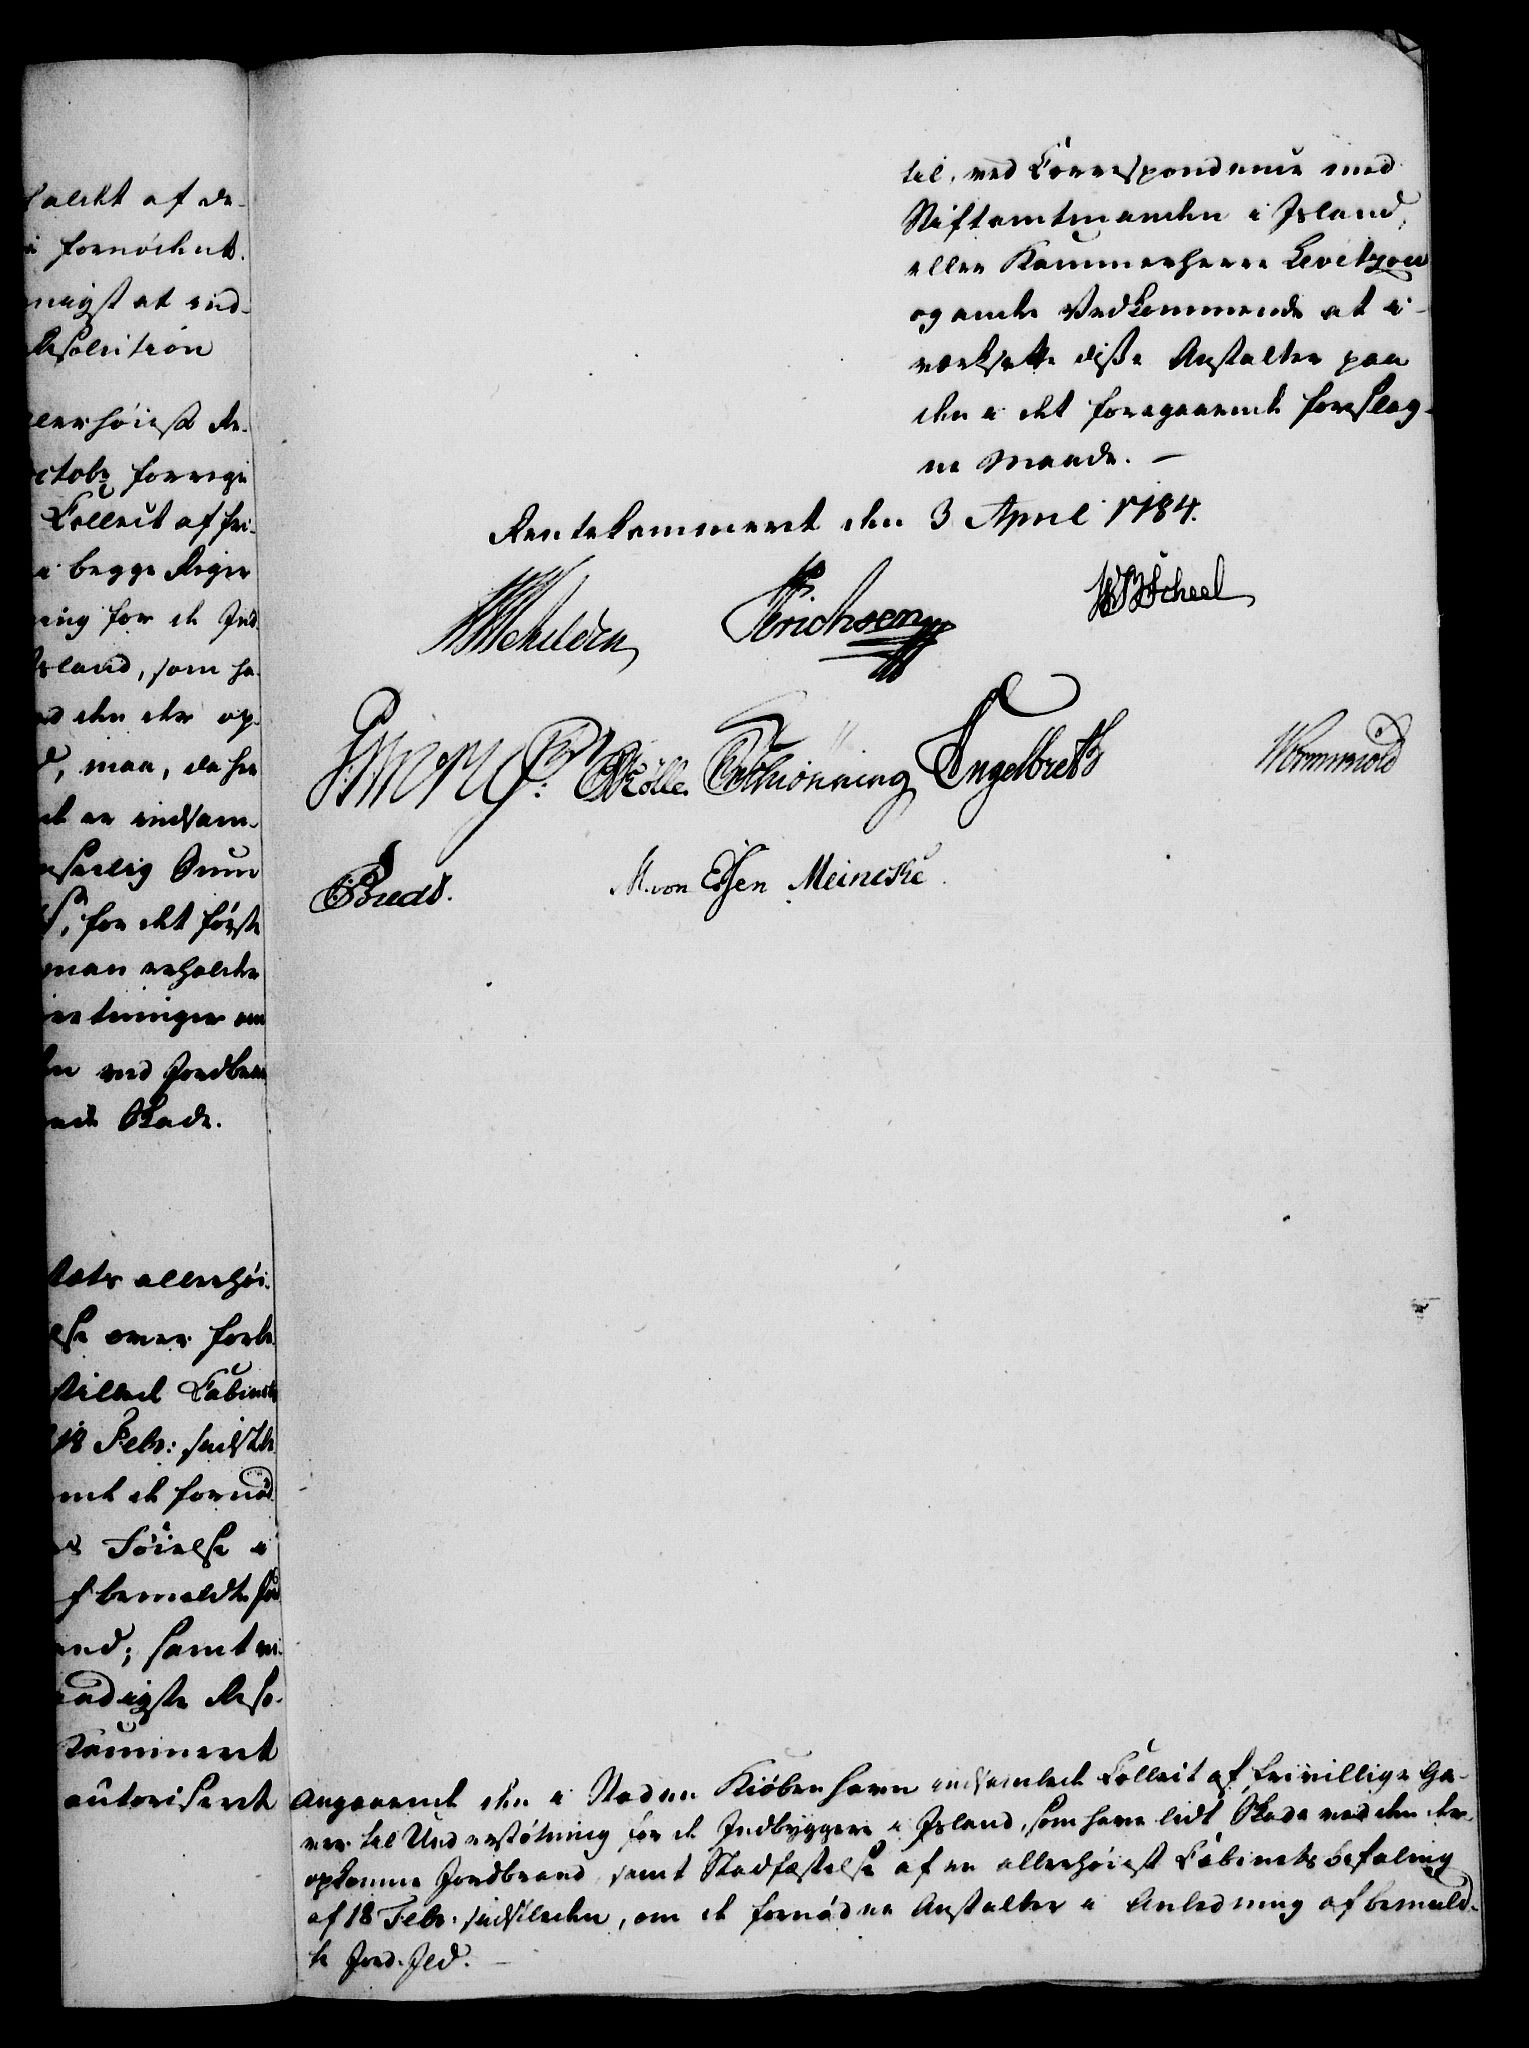 haldt af de-
fornödent.
nigst at ind-
Resolution
allerhöiest Re-
Octobr forrige
Collect af fri-
i begge Riger
ning for de Ind-
Island, som ha-
ved den der op-
maa, da her
et er indsam-
seelig Sum
for det første
man erholder
retninger om
ved Jordbran
ende Skade.
tæts allerhöi-
lse over forbe-
stilled Cabinets
18 Febr: sidstle
samt de fornöd
Föielse i
af bemeldte Jor
and; samt vi-
naadigste Reso-
Kammeret
autoriseret
til, ved Correspondence med
Stiftamtmanden i Island,
eller Kammerherre Levetzou
og andre Vedkommende at i-
værksætte disse Anstalter paa
den i det foregaaende foreslag-
ne Maade. —
Rentekammeret den 3 April 1784.
Schilden
JErichsen
WMScheel
Müller
Schiönning
Engelbreth
Wormskiold
Bueds.
M. von Essen Meincke.
Angaaende den i Staden Kiöbenhavn indsamlede Collect af frivillige Ga-
ver til Understötning for de Indbyggere i Island, som have lidt Skade ved den der
opkomne Jordbrand, samt Stadfæstelse af en allerhöiest Cabinets befaling
af 18 Febr. sidstleden, om de fornödne Anstalter i Anledning af bemeld-
te Jord-Ild. —